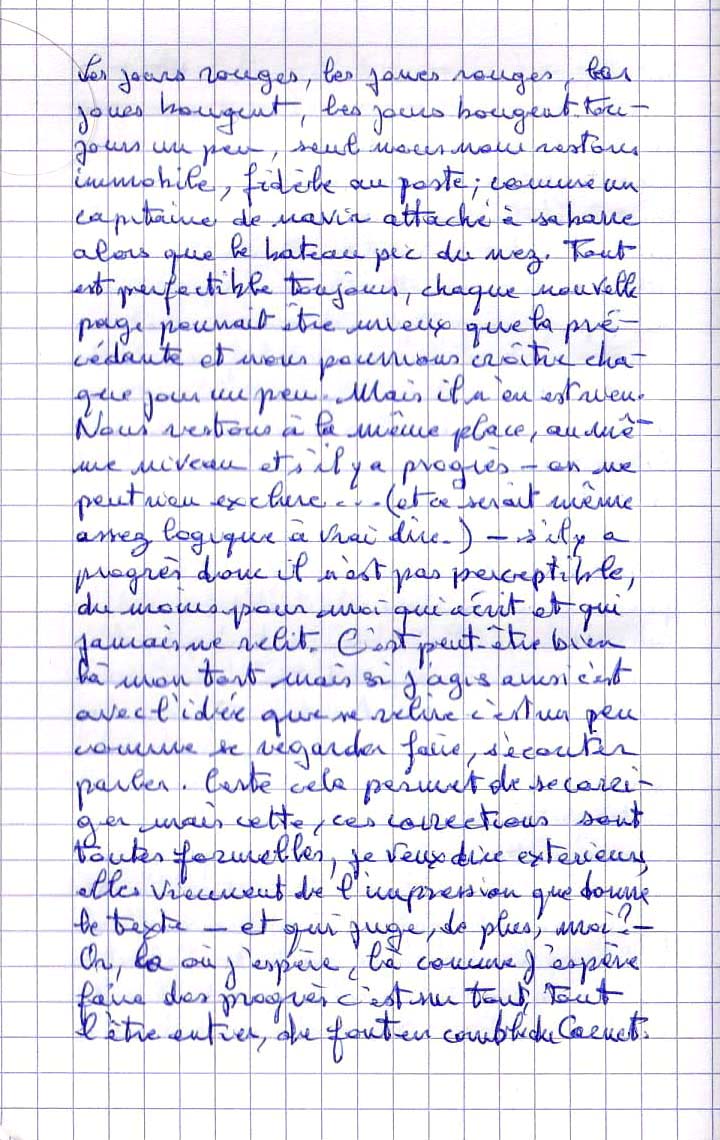 Les jours rouges, les joues rouges, les
joues bougent, les jours bougent tou-
jours un peu, seul nous nous restons
immobile, fidèle au poste ; comme un
capitaine de navir attaché à sa barre
alors que le bateau pic du nez. Tout
est perfectible toujours, chaque nouvelle
page pourrait être mieux que la pré-
cédante et nous pourrions croître cha-
que jour un peu. Mais il n'en est rien.
Nous restons à la même place, au mê-
me niveau et s'il y a progrès - on ne
peut rien exclure... (et ce serait même
assez logique à vrai dire.) - s'il y a
progrès donc il n'est pas perceptible,
du moins pour moi qui écrit et qui
jamais ne relit. C'est peut-être bien
là mon tort mais si j'agis ainsi c'est
avec l'idée que se relire c'est un peu
comme se regarder faire, s'écouter
parler. Certe cela permet de se corri-
ger mais cette, ces corrections sont
toutes formelles, je veux dire exterieurs,
elles viennent de l'impression que donne
le texte - et qui juge, de plus, moi ? -
Or, là où j'espère, là comme j'espère
faire des progrès c'est sur tout, tout
l'être entier, de font en comble du Carnet.